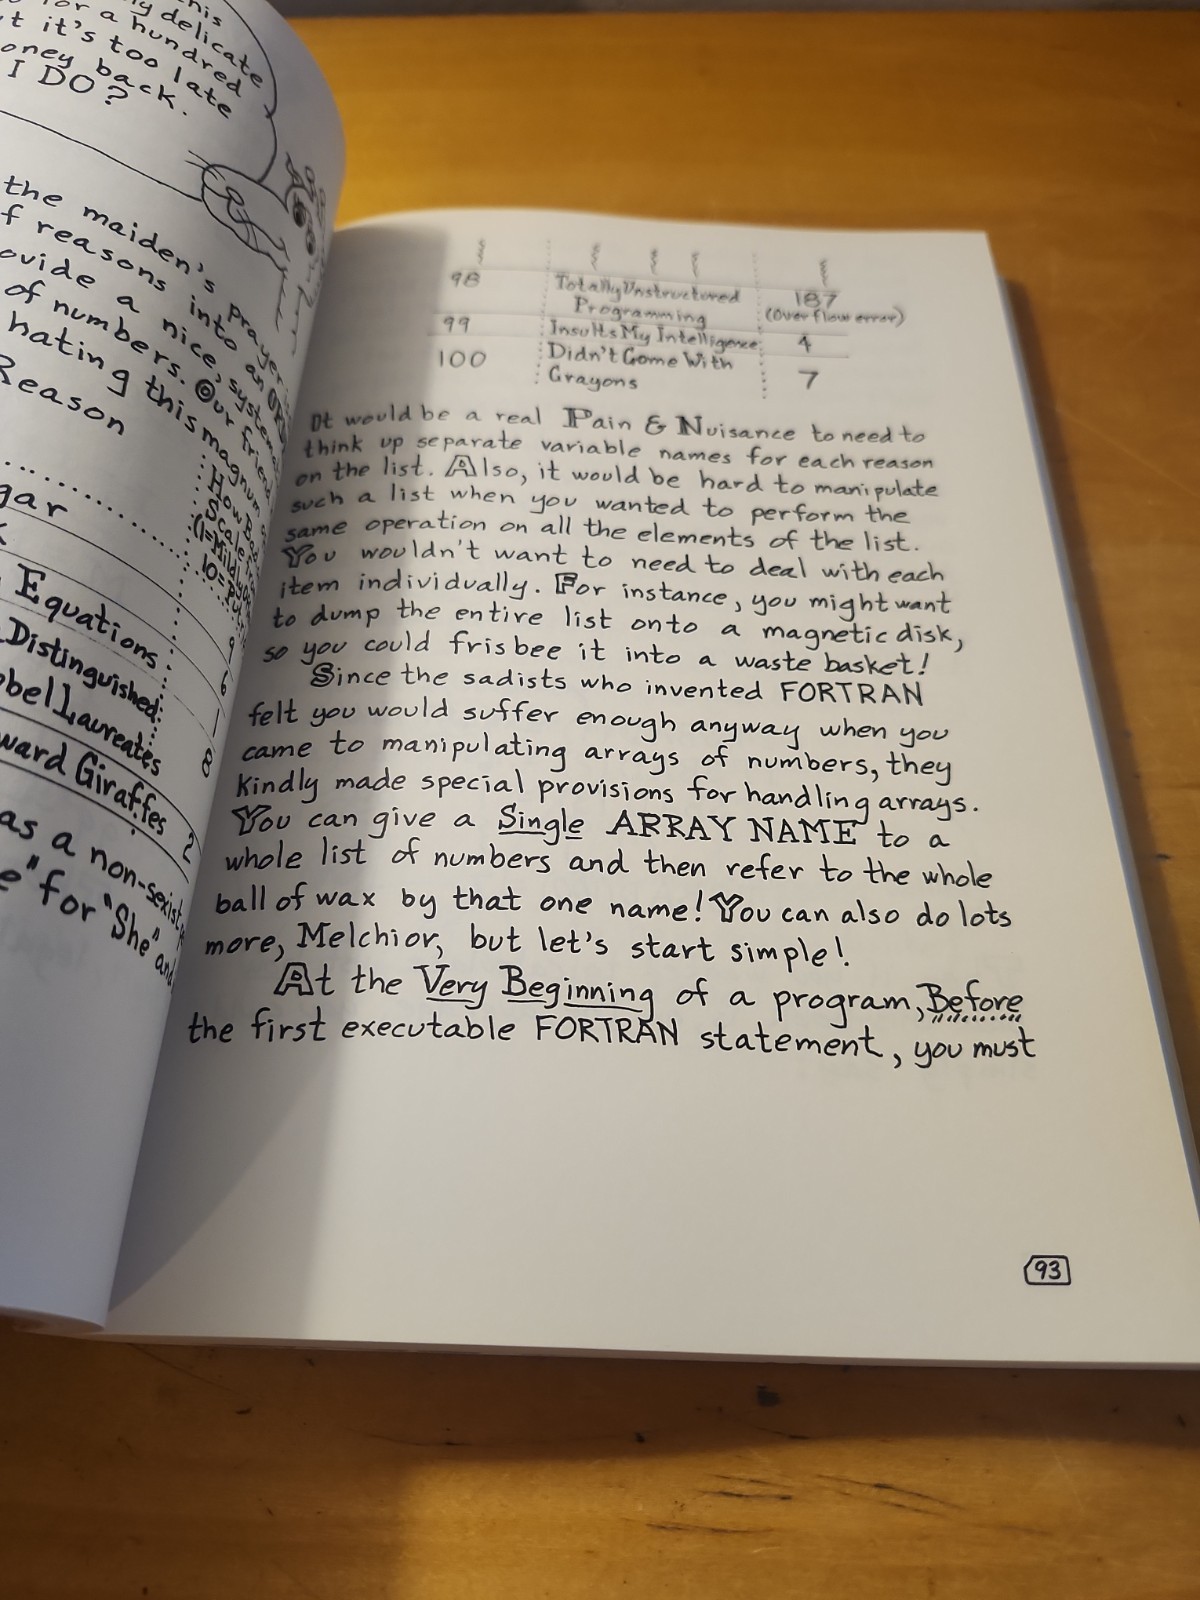 his
my delicate
for a hundred
t it's too late
oney back.
I DO?
the maiden's prayer
f reasons into an
ovide a nice, system
of numbers. Our friend
hating this magnum
Reason
How Bad
Scale
(1=Mild
10=
gar
9
6
Equations
1
Distinguished
obel Laureates
8
ward Giraffes
2
as a non-sexist
e" for "She" and
98 Totally Unstructured 187
Programming (Overflow error)
99 Insults My Intelligence 4
100 Didn't Come With
Crayons 7
It would be a real Pain & Nuisance to need to
think up separate variable names for each reason
on the list. Also, it would be hard to manipulate
such a list when you wanted to perform the
same operation on all the elements of the list.
You wouldn't want to need to deal with each
item individually. For instance, you might want
to dump the entire list onto a magnetic disk,
so you could frisbee it into a waste basket!
Since the sadists who invented FORTRAN
felt you would suffer enough anyway when you
came to manipulating arrays of numbers, they
kindly made special provisions for handling arrays.
You can give a Single ARRAY NAME to a
whole list of numbers and then refer to the whole
ball of wax by that one name! You can also do lots
more, Melchior, but let's start simple!
At the Very Beginning of a program, Before
the first executable FORTRAN statement, you must
93